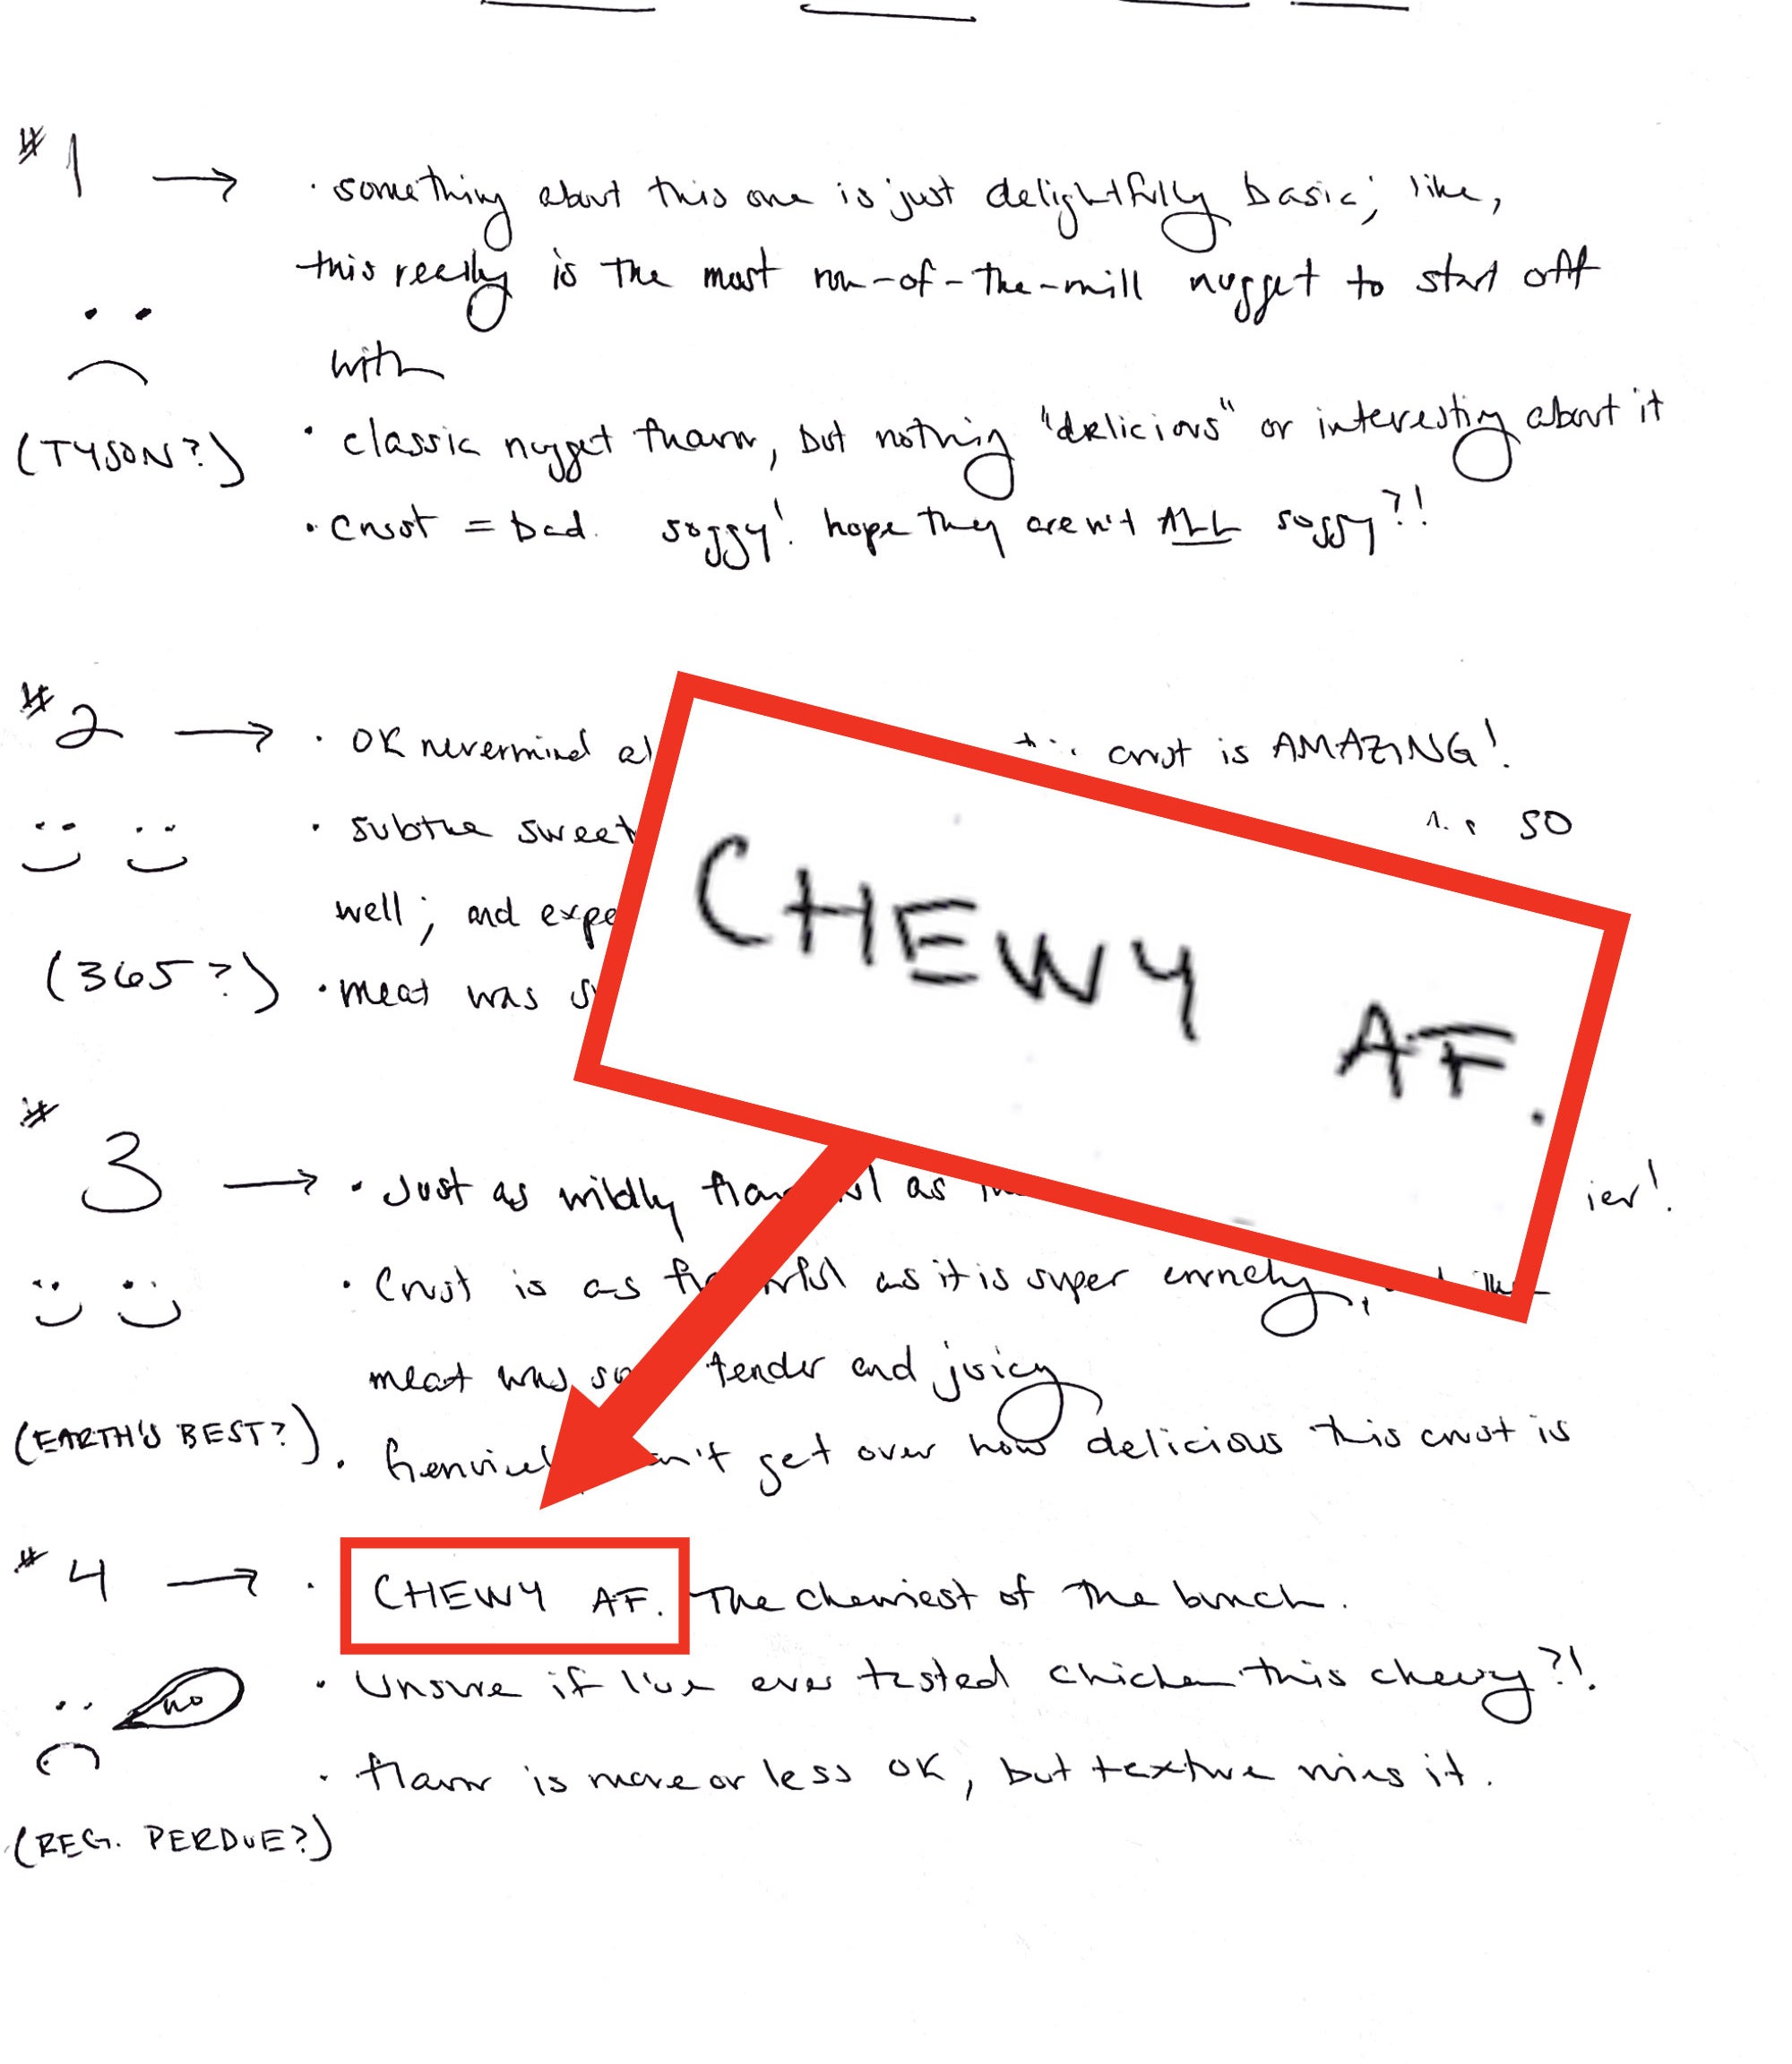 #1 → · something about this one is just delightfully basic; like,
this really is the most run-of-the-mill nugget to start off
with
(TYSON?) · classic nugget flavor, but nothing "delicious" or interesting about it
· crust = bad. soggy! hope they aren't ALL soggy?!
#2 → · OK nevermind crust is AMAZING!
· subtle sweet so
well; and
(365?) · meat was
CHEWY AF.
#3 → · Just as mildly as
· Crust is as as it is super crunchy,
meat was tender and juicy
(EARTH'S BEST?) · get over how delicious this crust is
#4 → · CHEWY AF. The chewiest of the bunch.
no · Unsure if I've ever tasted chicken this chewy?!
· flavor is more or less OK, but texture ruins it.
(REG. PERDUE?)